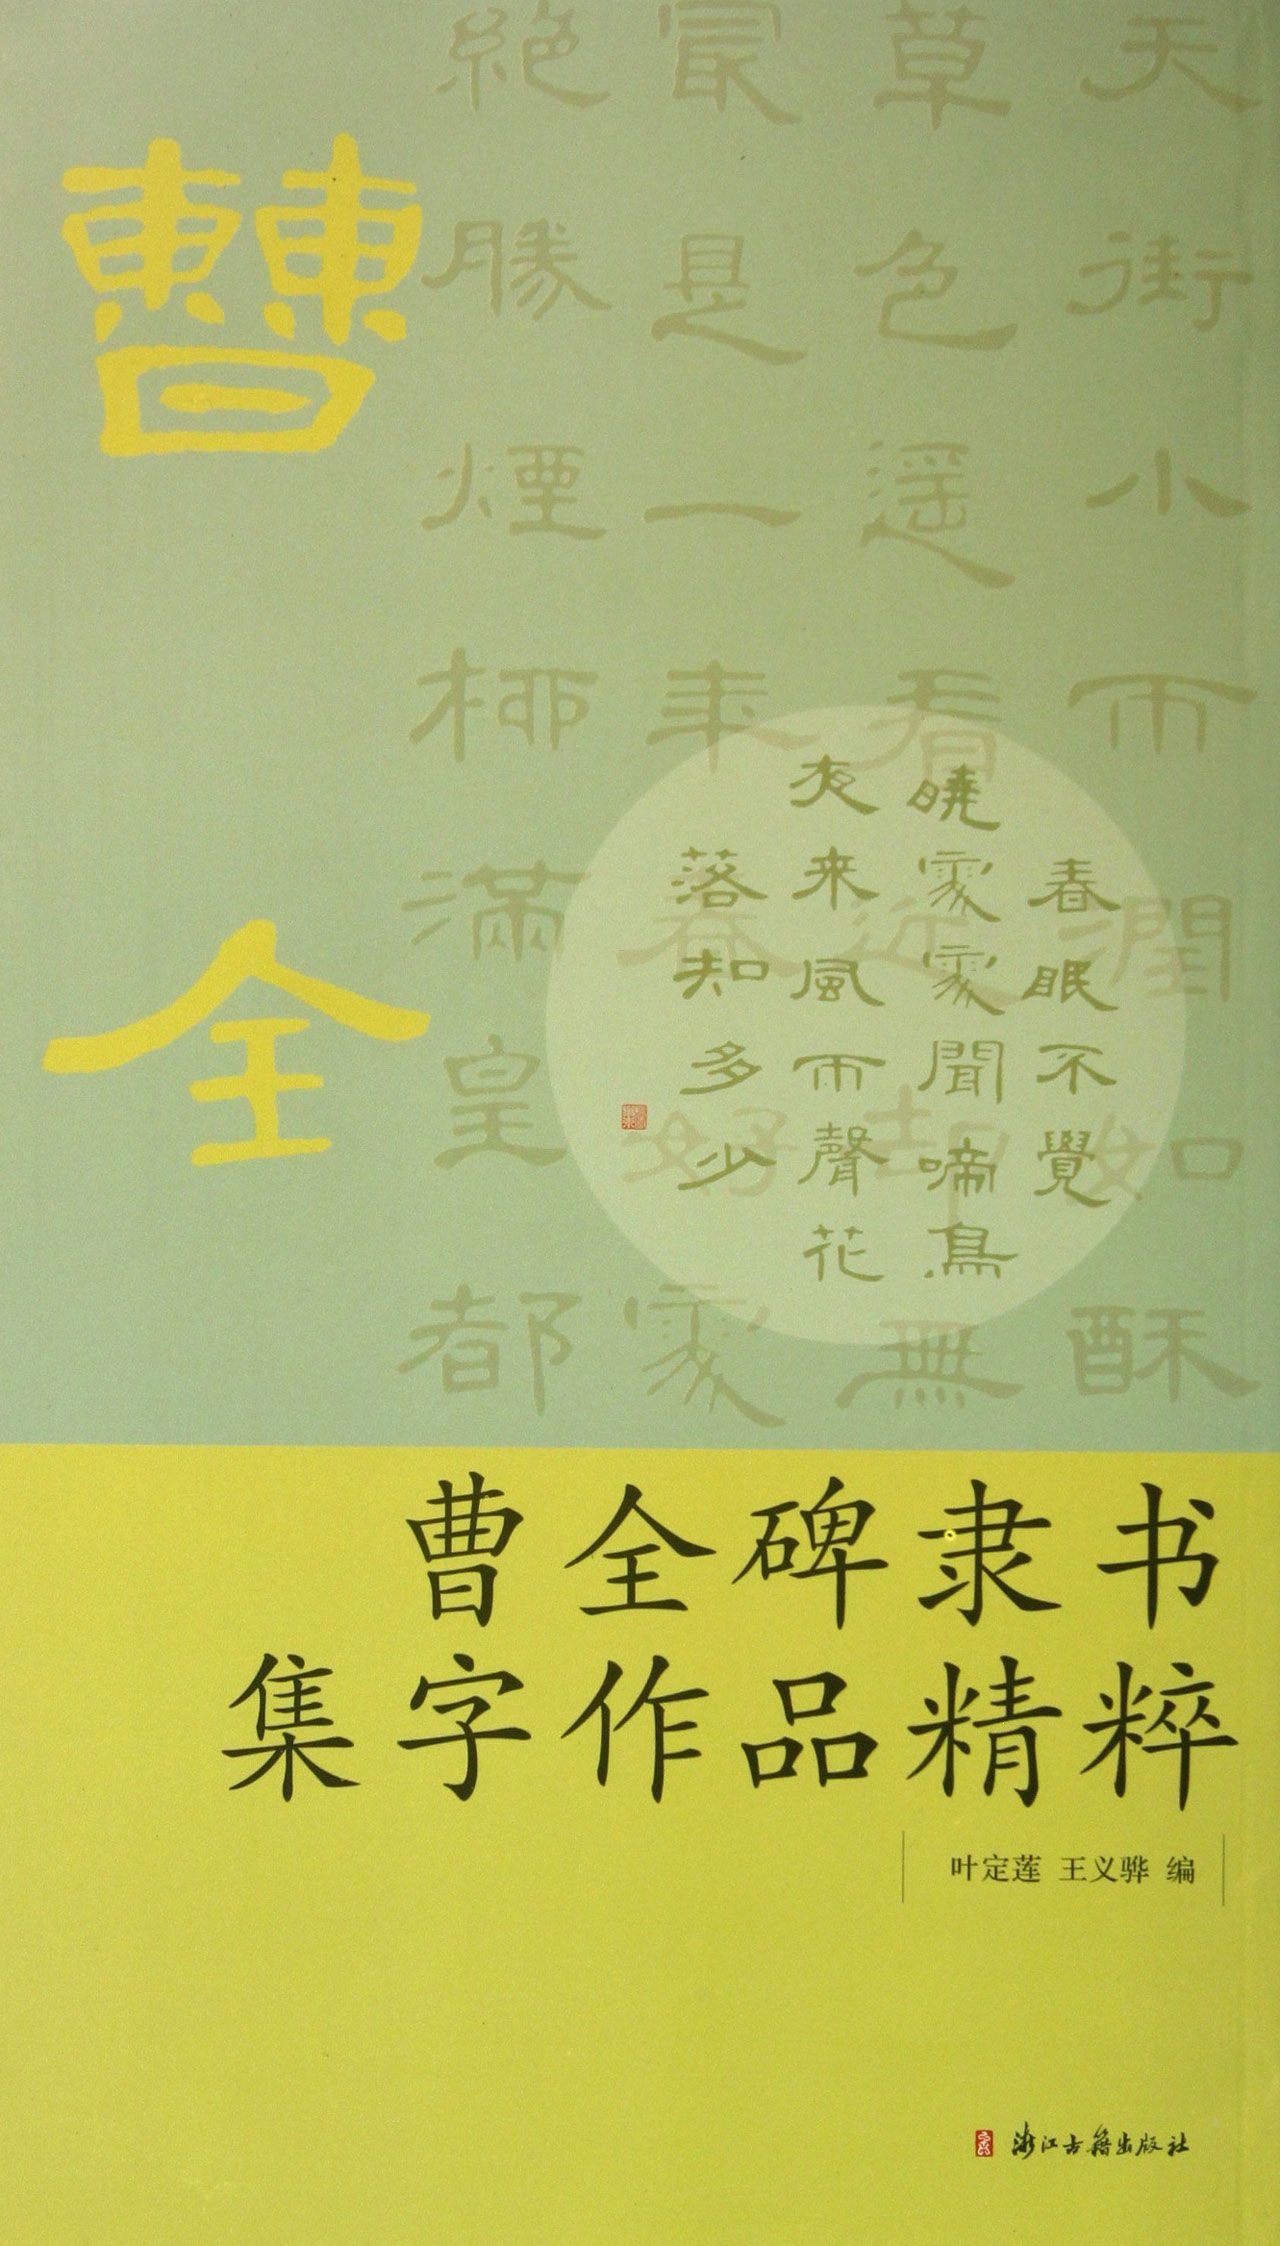 曹全
天街小雨潤如酥
草色遥看近却無
冣是一年春好處
絕勝煙柳滿皇都
春眠不覺
曉處處聞啼鳥
夜来風雨聲花
落知多少
曹全碑隶书
集字作品精粹
叶定莲 王义骅 编
浙江古籍出版社